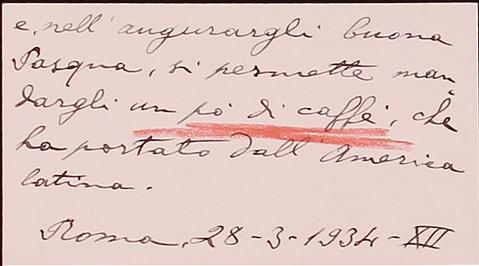 e, nell'augurargli buona
Pasqua, si permette man-
dargli un pò di caffè, che
ha portato dall'America
latina.
Roma, 28-3-1934-XII